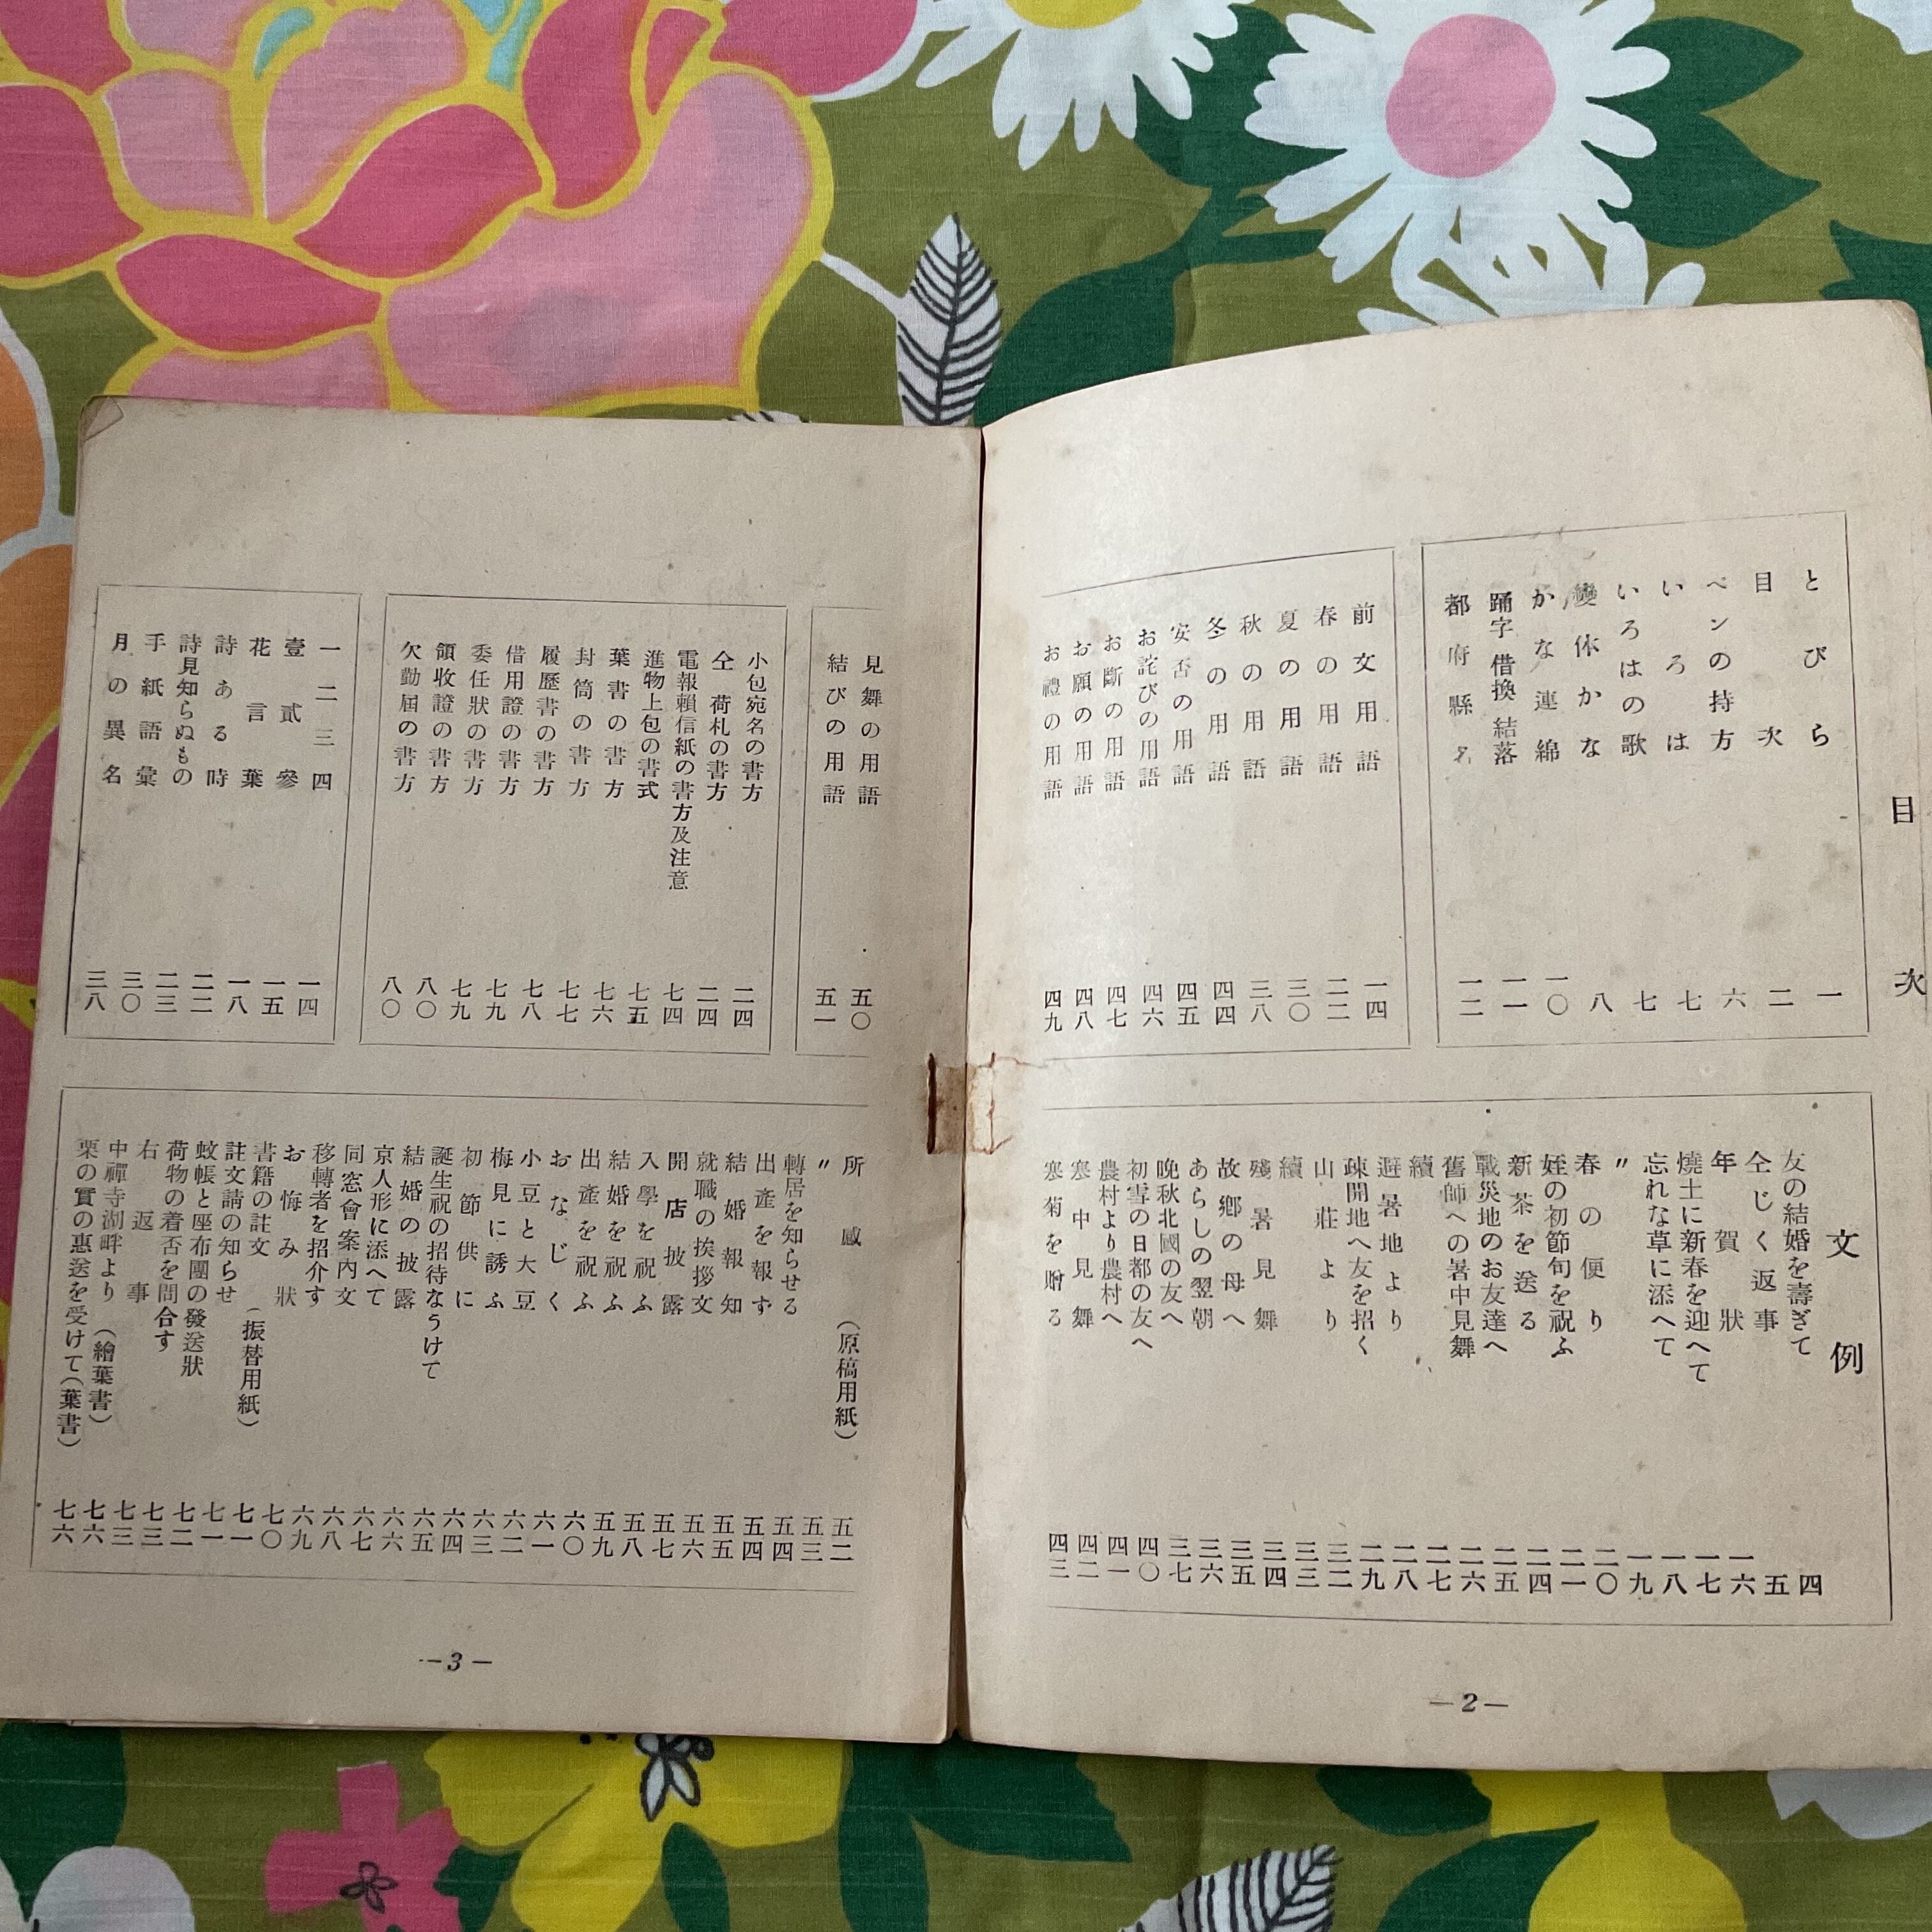 目次
とびら 一
目次 二
ペンの持方 六
いろは 七
いろはの歌 七
變体かな 八
かな連綿 一〇
踊字 借換 結落 一一
都府縣名 一二
前文用語 一四
春の用語 二二
夏の用語 三〇
秋の用語 三八
冬の用語 四四
安否の用語 四五
お詫びの用語 四六
お斷の用語 四七
お願の用語 四八
お禮の用語 四九
文例
友の結婚を壽ぎて 四
仝じく返事 五
年賀狀 一六
燒土に新春を迎へて 一七
忘れな草に添へて 一八
〃 一九
春の便り 二〇
姪の初節句を祝ふ 二一
新茶を送る 二四
戰災地のお友達へ 二五
舊師への暑中見舞 二六
續 二七
避暑地より 二八
疎開地へ友を招く 二九
山莊より 三二
續 三三
殘暑見舞 三四
故鄕の母へ 三五
あらしの翌朝 三六
晩秋北國の友へ 三七
初雪の日都の友へ 四〇
農村より農村へ 四一
寒中見舞 四二
寒菊を贈る 四三
—2—
見舞の用語 五〇
結びの用語 五一
小包宛名の書方 二四
仝 荷札の書方 二四
電報賴信紙の書方及注意 七四
進物上包の書式 七五
葉書の書方 七六
封筒の書方 七七
履歷書の書方 七八
借用證の書方 七九
委任狀の書方 七九
領收證の書方 八〇
欠勤屆の書方 八〇
一二三四 一四
壹貳參 一五
花言葉 一八
詩ある時 二二
詩見知らぬもの 二三
手紙語彙 三〇
月の異名 三八
所感 (原稿用紙) 五二
〃 五三
轉居を知らせる 五四
出產を報ず 五四
結婚報知 五五
就職の挨拶文 五六
開店披露 五七
入學を祝ふ 五八
結婚を祝ふ 五九
出產を祝ふ 六〇
おなじく 六一
小豆と大豆 六二
梅見に誘ふ 六三
初節供に 六四
誕生祝の招待をうけて 六五
結婚の披露 六六
京人形に添へて 六七
同窓會案内文 六八
移轉者を招介す 六九
お悔み狀 七〇
書籍の註文 (振替用紙) 七一
註文請の知らせ 七一
蚊帳と座布團の發送狀 七二
荷物の着否を問合す 七三
右返事 七三
中禪寺湖畔より (繪葉書) 七六
栗の實の惠送を受けて(葉書) 七六
—3—